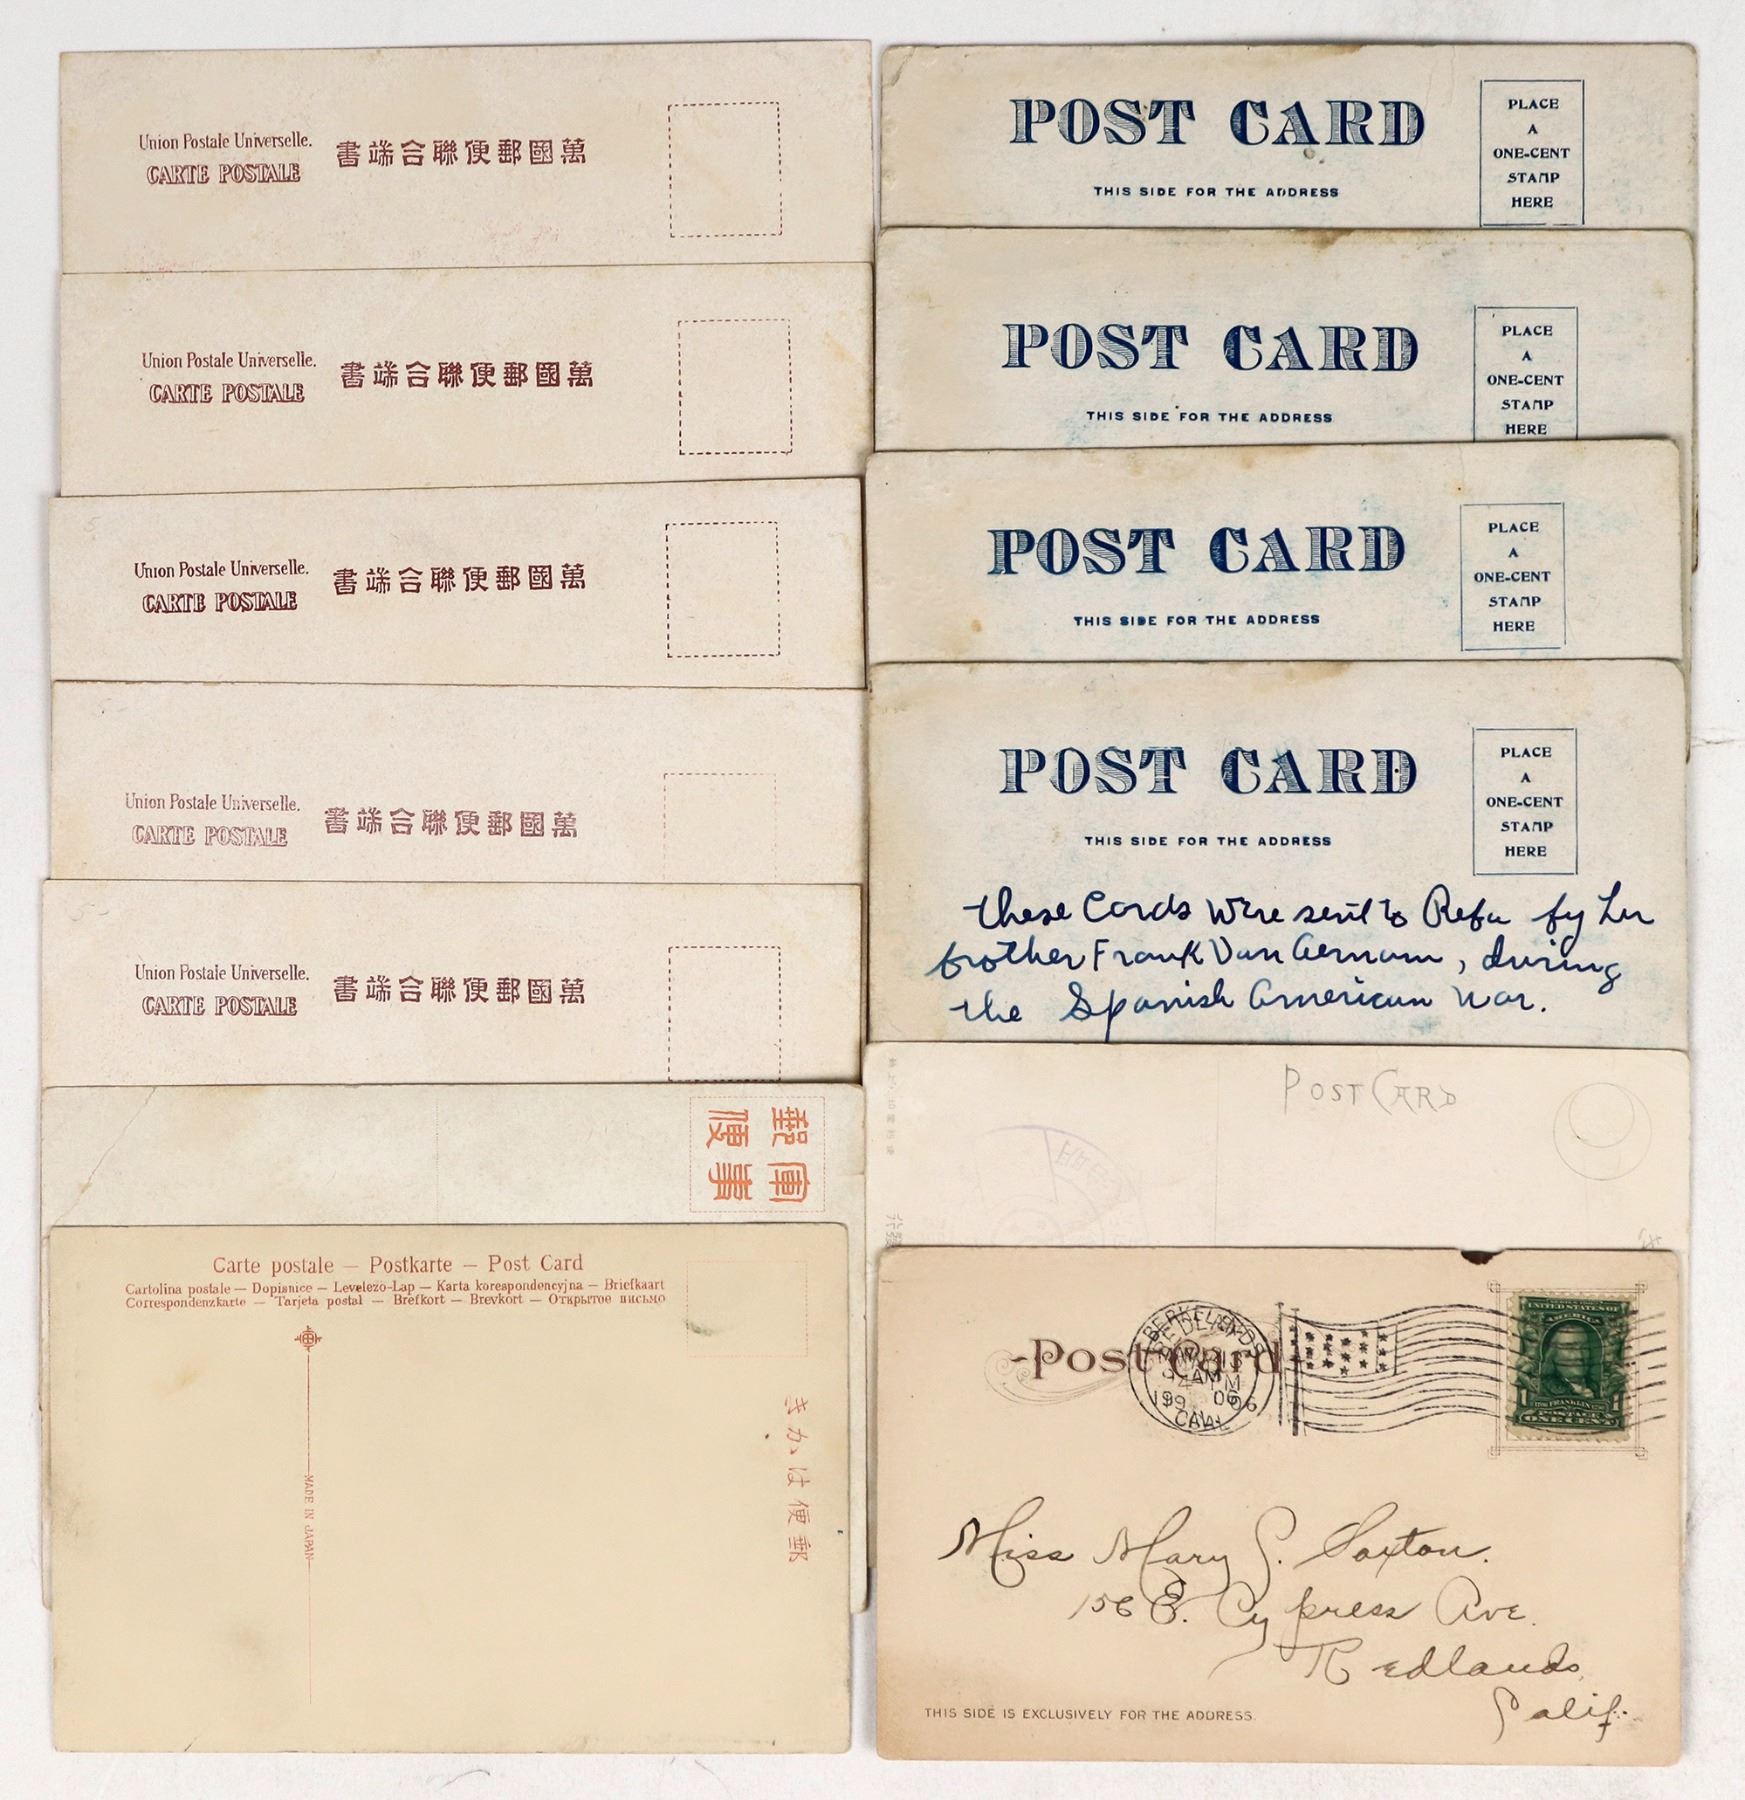 Union Postale Universelle.
CARTE POSTALE
書端合聯便郵國萬
Union Postale Universelle.
CARTE POSTALE
書端合聯便郵國萬
Union Postale Universelle.
CARTE POSTALE
書端合聯便郵國萬
Union Postale Universelle.
CARTE POSTALE
書端合聯便郵國萬
Union Postale Universelle.
CARTE POSTALE
書端合聯便郵國萬
軍事
郵便
Carte postale — Postkarte — Post Card
Cartolina postale — Dopisnice — Levelezö-Lap — Karta korespondencyjna — Briefkaart
Correspondenzkarte — Tarjeta postal — Brefkort — Brevkort — Открытое письмо
MADE IN JAPAN
きかは便郵
POST CARD
THIS SIDE FOR THE ADDRESS
PLACE
A
ONE-CENT
STAMP
HERE
POST CARD
THIS SIDE FOR THE ADDRESS
PLACE
A
ONE-CENT
STAMP
HERE
POST CARD
THIS SIDE FOR THE ADDRESS
PLACE
A
ONE-CENT
STAMP
HERE
POST CARD
THIS SIDE FOR THE ADDRESS
PLACE
A
ONE-CENT
STAMP
HERE
These Cards were sent to Refa by her
brother Frank Van Aernam, during
the Spanish American War.
POST CARD
Post Card
CAL
UNITED STATES OF
AMERICA
FRANKLIN
POSTAGE
1 ONE CENT 1
Miss Mary S. Saxton.
156 E. Cypress Ave.
Redlands,
Calif.
THIS SIDE IS EXCLUSIVELY FOR THE ADDRESS.